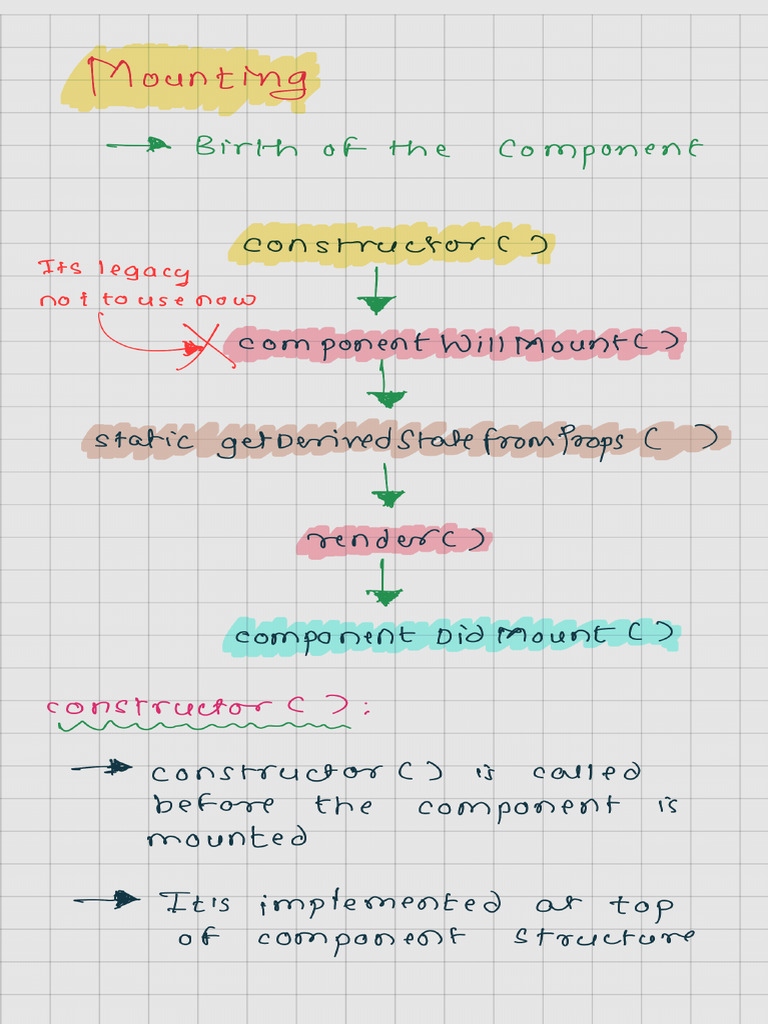 Mounting
Birth of the Component
constructor()
Its legacy
not to use now
componentWillMount()
static getDerivedStatefromProps( )
render()
componentDidMount()
constructor():
constructor() is called
before the component is
mounted
It is implemented at top
of component structure